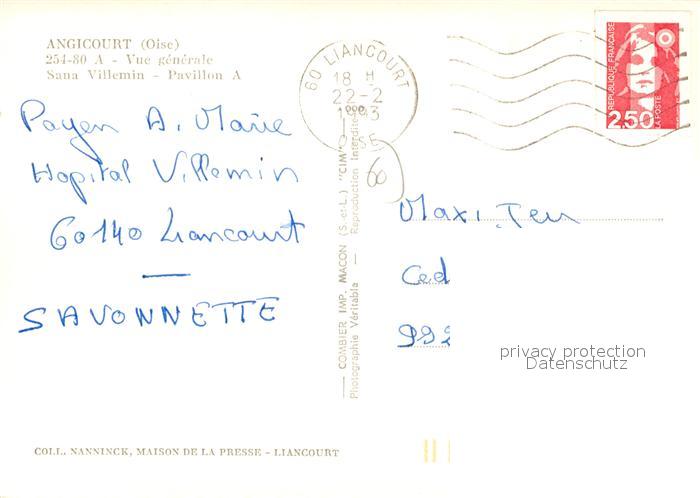 ANGICOURT (Oise)
254-80 A - Vue générale
Sana Villemin - Pavillon A
60 LIANCOURT
18 H
22-2
1993
OISE
RÉPUBLIQUE FRANÇAISE
2,50
LA POSTE
Payen A. Marie
Hopital Villemin
60140 Liancourt
SAVONNETTE
60
COMBIER IMP. MACON (S.-et-L.) "CIM"
Photographie Véritable — Reproduction Interdite
Maxi
Ced
992
privacy protection
Datenschutz
COLL. NANNINCK, MAISON DE LA PRESSE - LIANCOURT